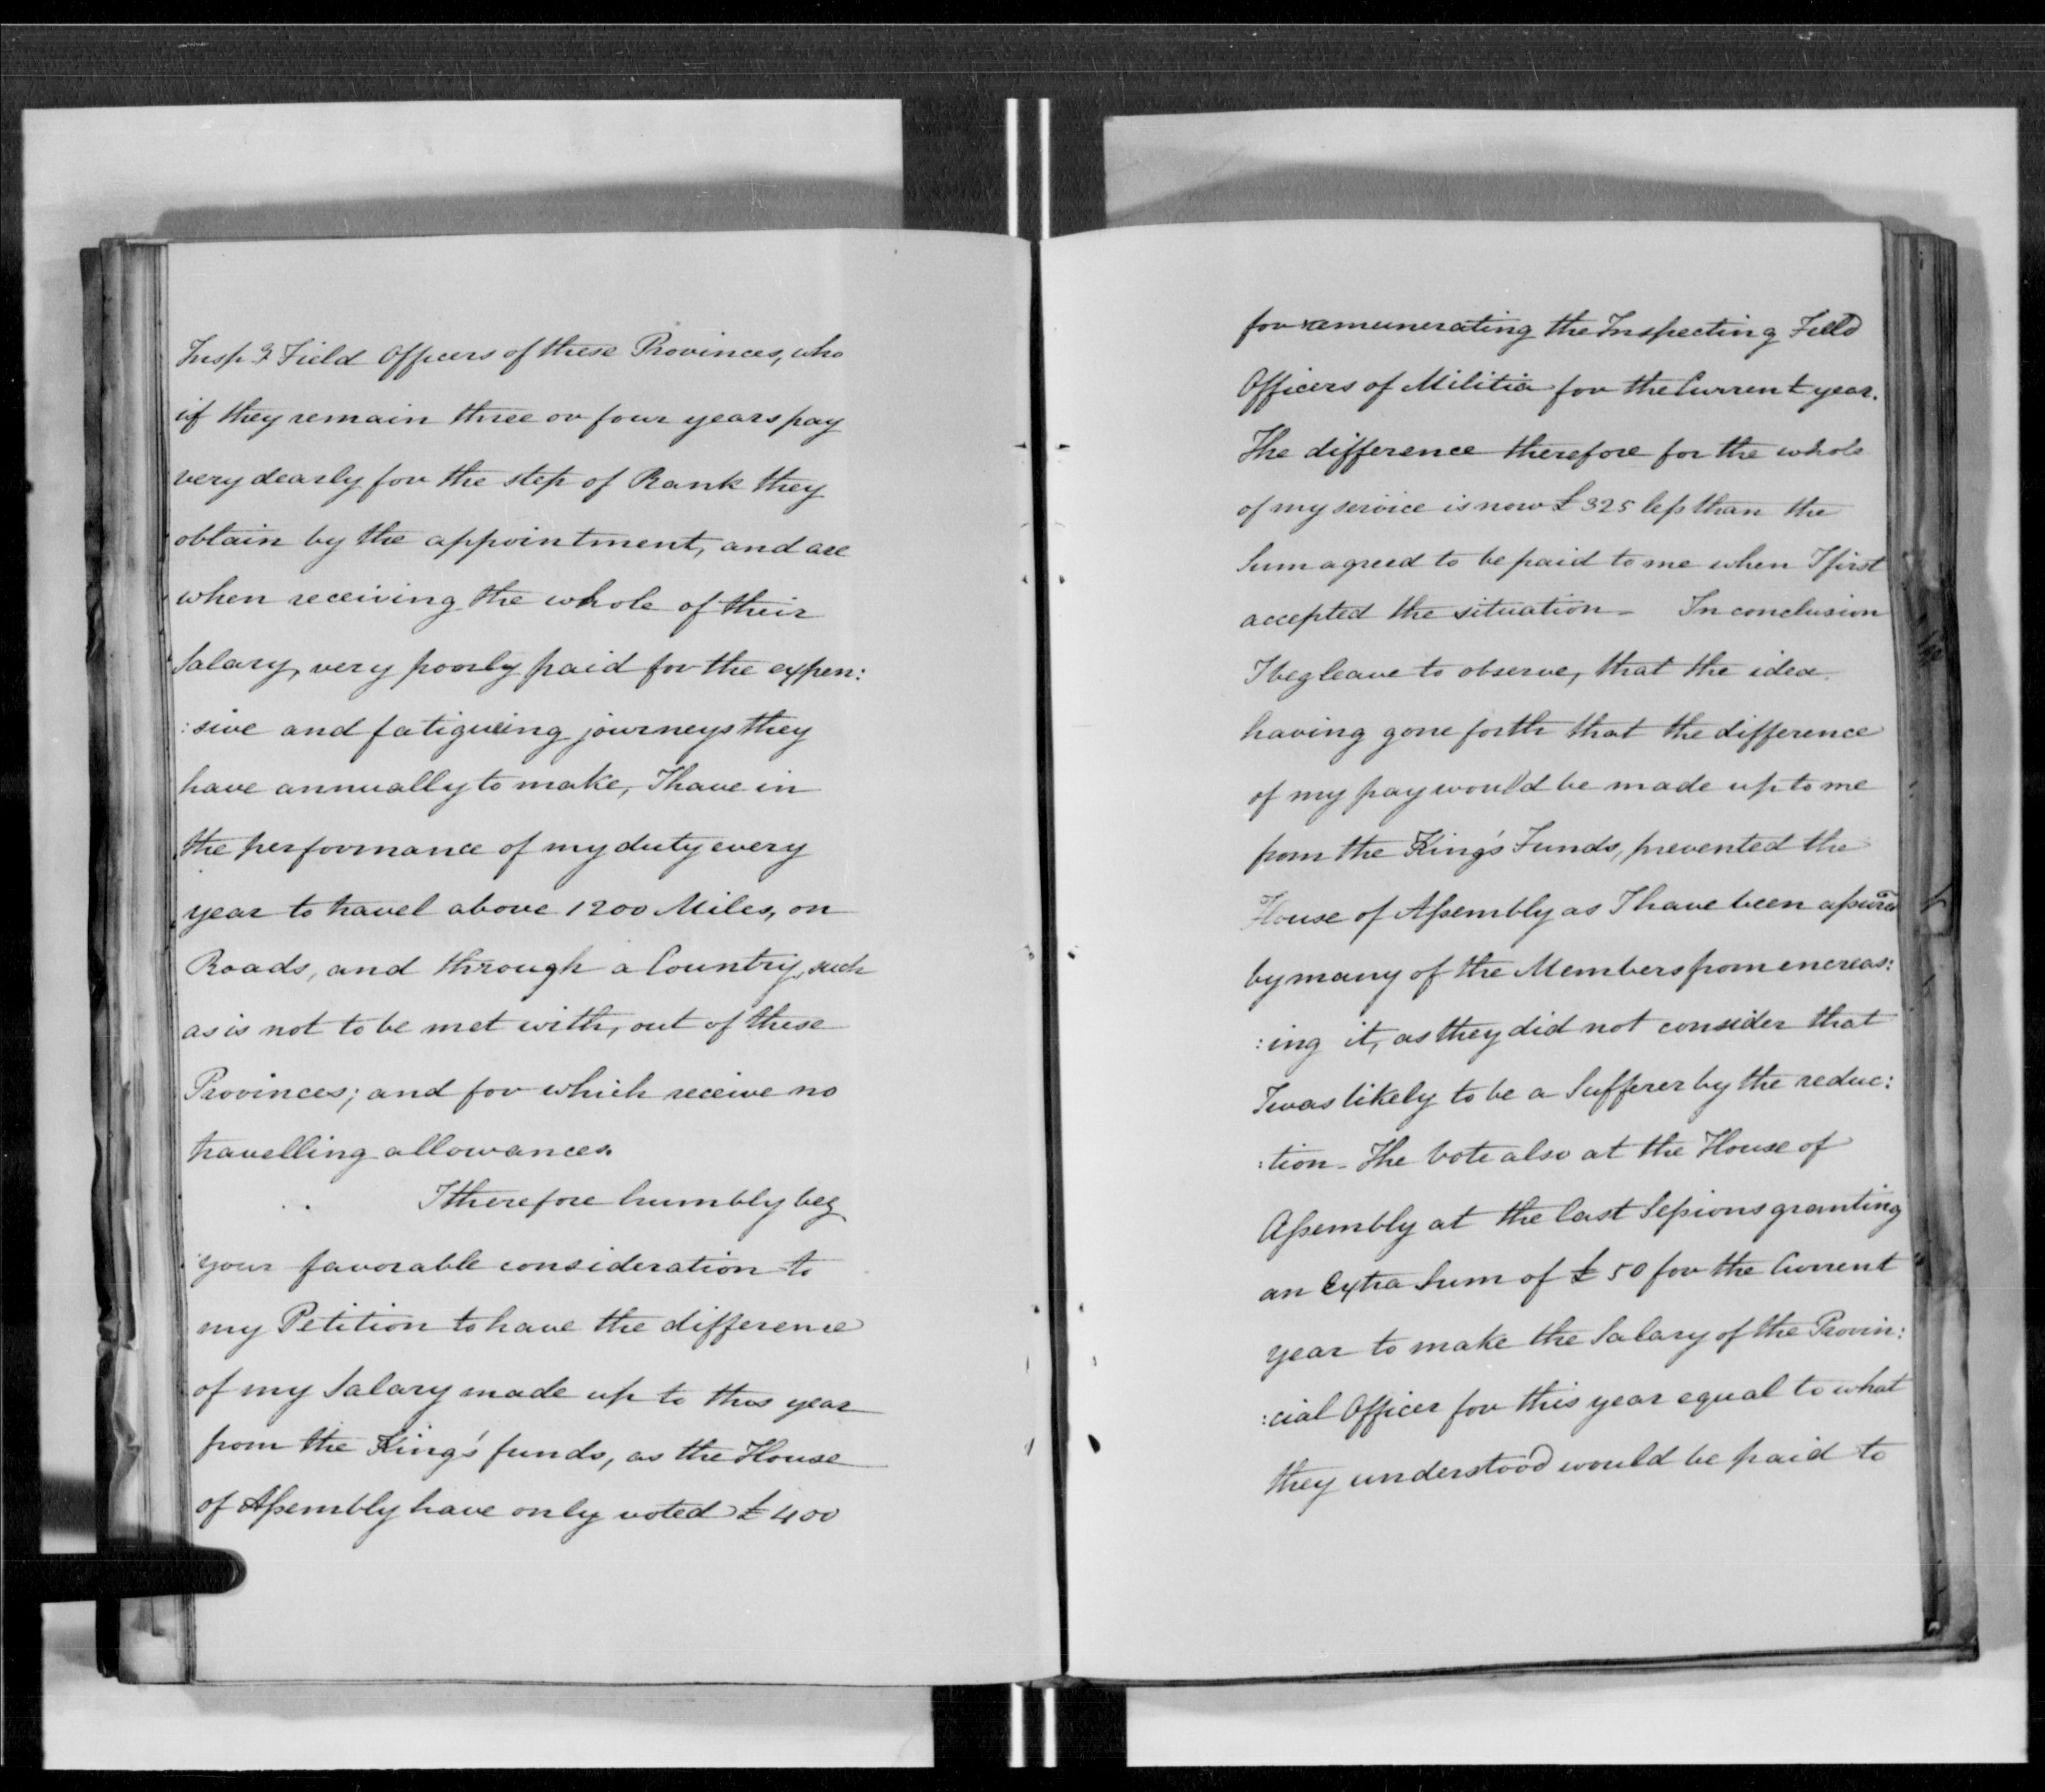 Insp.g Field Officers of these Provinces, who
if they remain three or four years pay
very dearly for the step of Rank they
obtain by the appointment, and are
when receiving the whole of their
Salary, very poorly paid for the expen:
:sive and fatigueing journeys they
have annually to make, I have in
the performance of my duty every
year to travel above 1200 Miles, on
Roads, and through a Country, such
as is not to be met with, out of these
Provinces; and for which receive no
travelling allowances.
I therefore humbly beg
your favorable consideration to
my Petition to have the difference
of my Salary made up to this year
from the King's funds, as the House
of Assembly have only voted £400
for remunerating the Inspecting Field
Officers of Militia for the Current year.
The difference therefore for the whole
of my service is now £325 less than the
Sum agreed to be paid to me when I first
accepted the situation – In conclusion
I beg leave to observe, that the idea
having gone forth that the difference
of my pay would be made up to me
from the King's Funds, prevented the
House of Assembly as I have been assured
by many of the Members from encreas:
:ing it, as they did not consider that
I was likely to be a Sufferer by the reduc:
:tion – The Vote also at the House of
Assembly at the last Sessions granting
an Extra Sum of £50 for the Current
year to make the Salary of the Provin:
:cial Officer for this year equal to what
they understood would be paid to